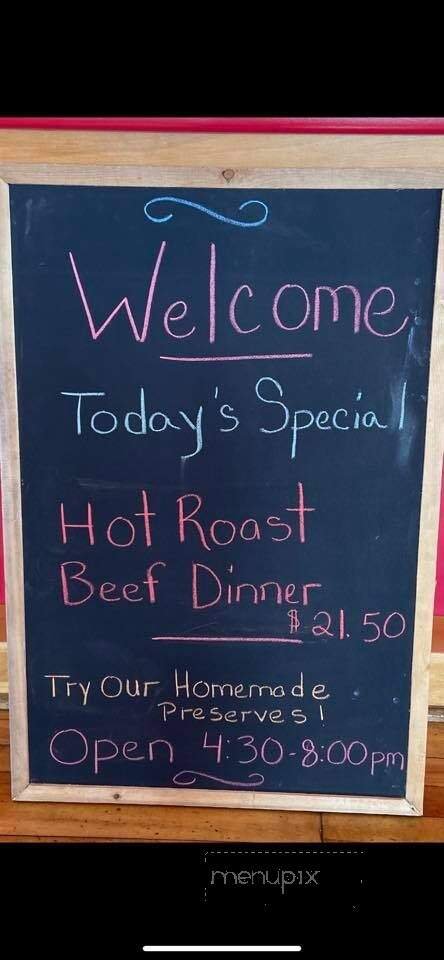 Welcome
Today's Special
Hot Roast
Beef Dinner
$21.50
Try Our Homemade
Preserves!
Open 4:30-8:00pm
menupix